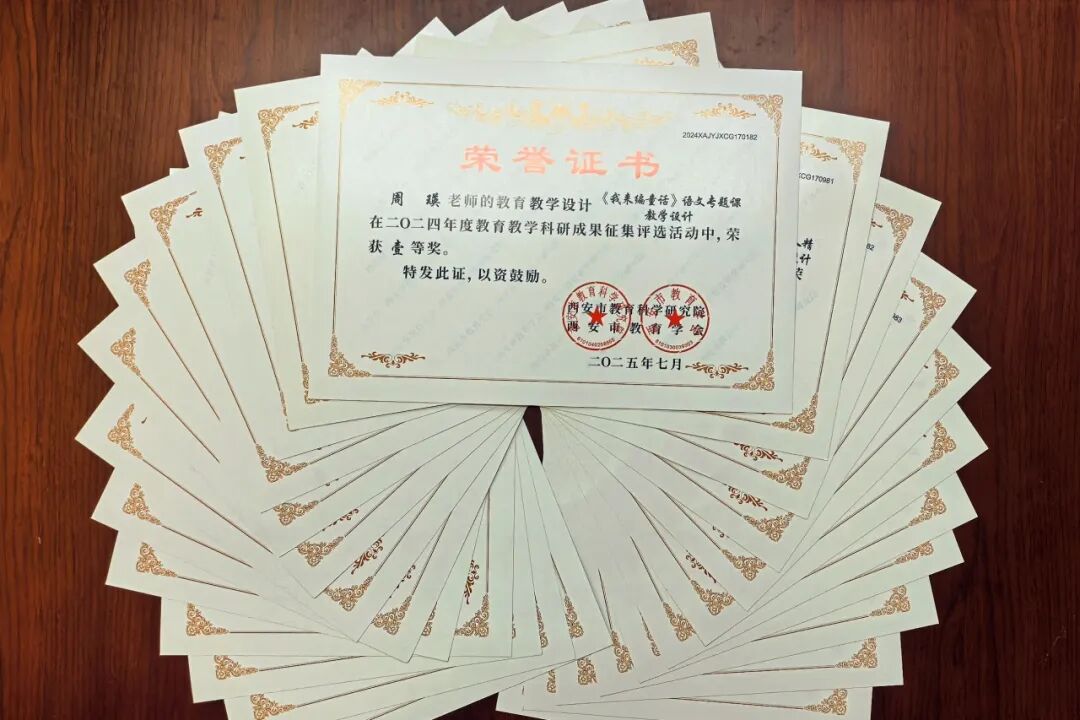 2024XAJYJXCG170182
荣誉证书
周 瑛 老师的教育教学设计 《我来编童话》语文专题课
教学设计
在二〇二四年度教育教学科研成果征集评选活动中,荣
获 壹 等奖。
特发此证,以资鼓励。
西安市教育科学研究院
西安市教育学会
二〇二五年七月
6101040259805
XCG170981
精
计
荣